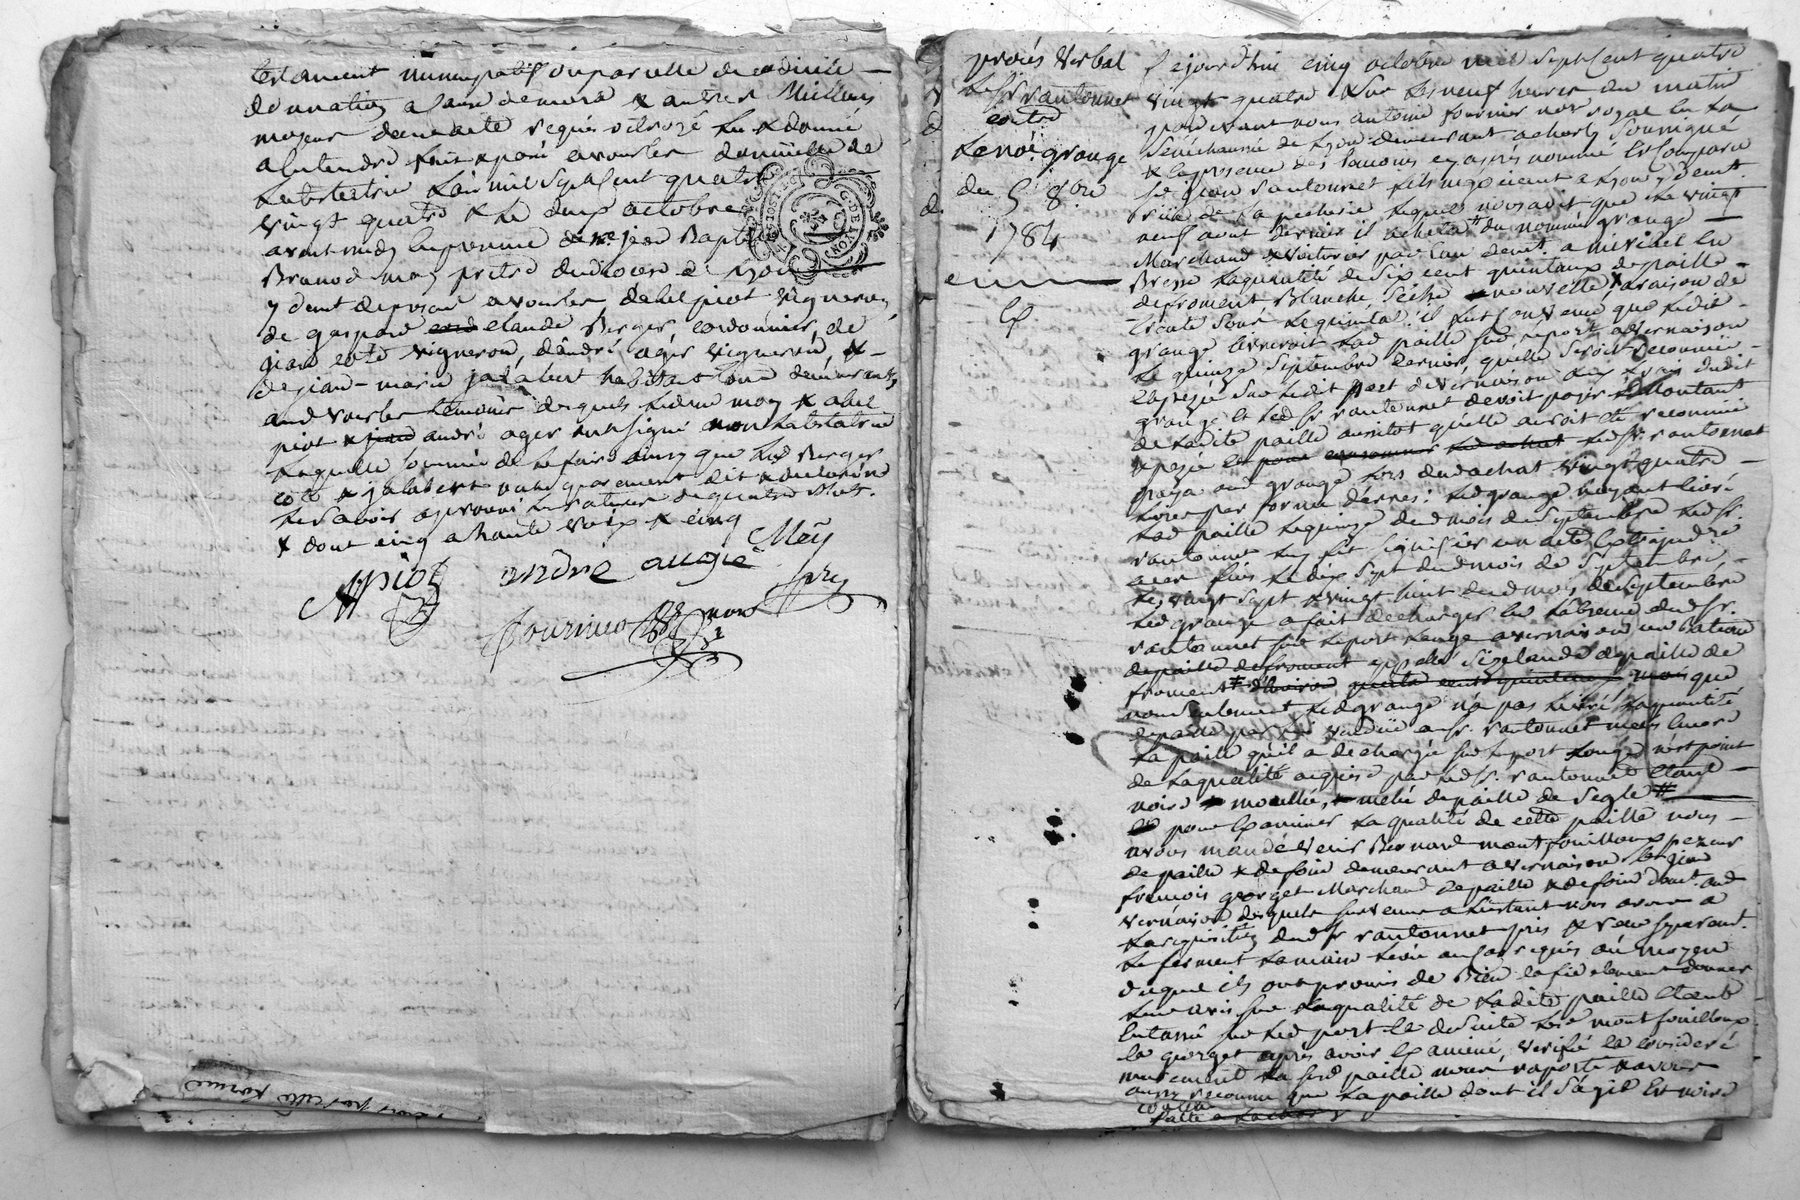 testament nuncupatif ou par celle de codicile
donnation a cause de mort & autres Meilleurs
moyens dont acte requis octroyé lu & donné
a entendre fait & passé a vourles domicille de
la testatrice l'an mil sept cent quatre
vingt quatre & le deux octobre
avant midy en presence de Me jean Bapte
Brunod prêtre du diocese de Lyon
y demt de pascal a vourles de piot vigneron
de gaspard claude Berger, cordonnier, de
jean coté vigneron, d'andré ager vigneron, &
de jean-marie jalabert habitant tous demeurants
aud vourles temoins desquels led Me mey & abel
piot & andré ager ont signé non la testatrice
laquelle sommée de le faire ainsy que led Berger
coté & jalabert ont separement dit & declaré ne
le savoir approuvé la rature de quatre Mots.
& dont cinq a haute voix & cinq
Mey
AP piot andré augié ptre
fournier nore
procés Verbal
le Sr vantonnet
contre
le né. grange
du 5 8bre
1784
Ce jourd'hui cinq octobre mil Sept Cent quatre
vingt quatre sur les neuf heures du matin
pardevant nous antoine fournier nore royal en la
Senechaussée de Lyon demeurant a charly Soussigné
& la presence des temoins cy après nommé Est Comparu
Se jean vantonnet negociant a Lyon y demt.
ruë de la pecherie lequel nous a dit que le vingt
neuf aout dernier il acheta du nommé grange
Marchand & Voiturier par Eau demt. a miribel en
Bresse la quantité de Six cent quintaux de paille
de froment Blanche, Séche & nouvelle, a raison de
trente Sous le quintal. il fut convenu que ledit
grange livreroit lad paille sur le port a vernaison
le quinze Septembre dernier, quelle Seroit reconnue
& pezée Sur ledit port de Vernaison aux frais dudit
grange Et led Sr vantonnet devoit payer le Montant
de ladite paille aussitot quelle auroit eté reconnue
& pezée led Sr. vantonnet
paya aud grange lors dud achat vingt quatre
Livres par forme d'erres: led grange n'ayant livré
lad paille le quinze dud mois de Septembre led Sr.
vantonnet luy fit signifier un acte Extrajudre
avec frais le dix Sept dud mois de Septembre,
les vingt sept & vingt huit dud mois de Septembre
led grange a fait decharger en l'absence dud Sr.
vantonnet sur le port rouge a vernaison un Bateau
de paille de froment appellé Sizelande de paille de
froment # d'environ quatre cent quintaux mais que
non Seulement led grange n'a pas livré la quantité
de paille par lui venduë au Sr. vantonnet mais Encore
la paille qu'il a dechargé sur le port rouge n'est point
de la qualité aquise par led Sr. vantonnet Etant
noire & mouillée, & melée de paille de Segle #
Et pour Examiner la qualité de cette paille nous
avons mandé Venir Bernard montfouilloux pezeur
de paille & de foin demeurant a vernaison Et jean
francois georget Marchand de paille & de foin demt. aud
vernaison desquels survenus a l'instant nous avons a
la requisition dud Sr vantonnet pris & reçu separemt.
le serment la main levée au cas requis au moyen
duquel ils ont promis de Bien & fidelement donner
leur avis sur la qualité de ladite paille Etant
Entassé sur led port Et de Suite led montfouilloux
Et georget après avoir Examiné, Verifié Et Consideré
murement la susd paille nous raporte & avoir
ainsy reconnu que la paille dont il s'agit Est noire